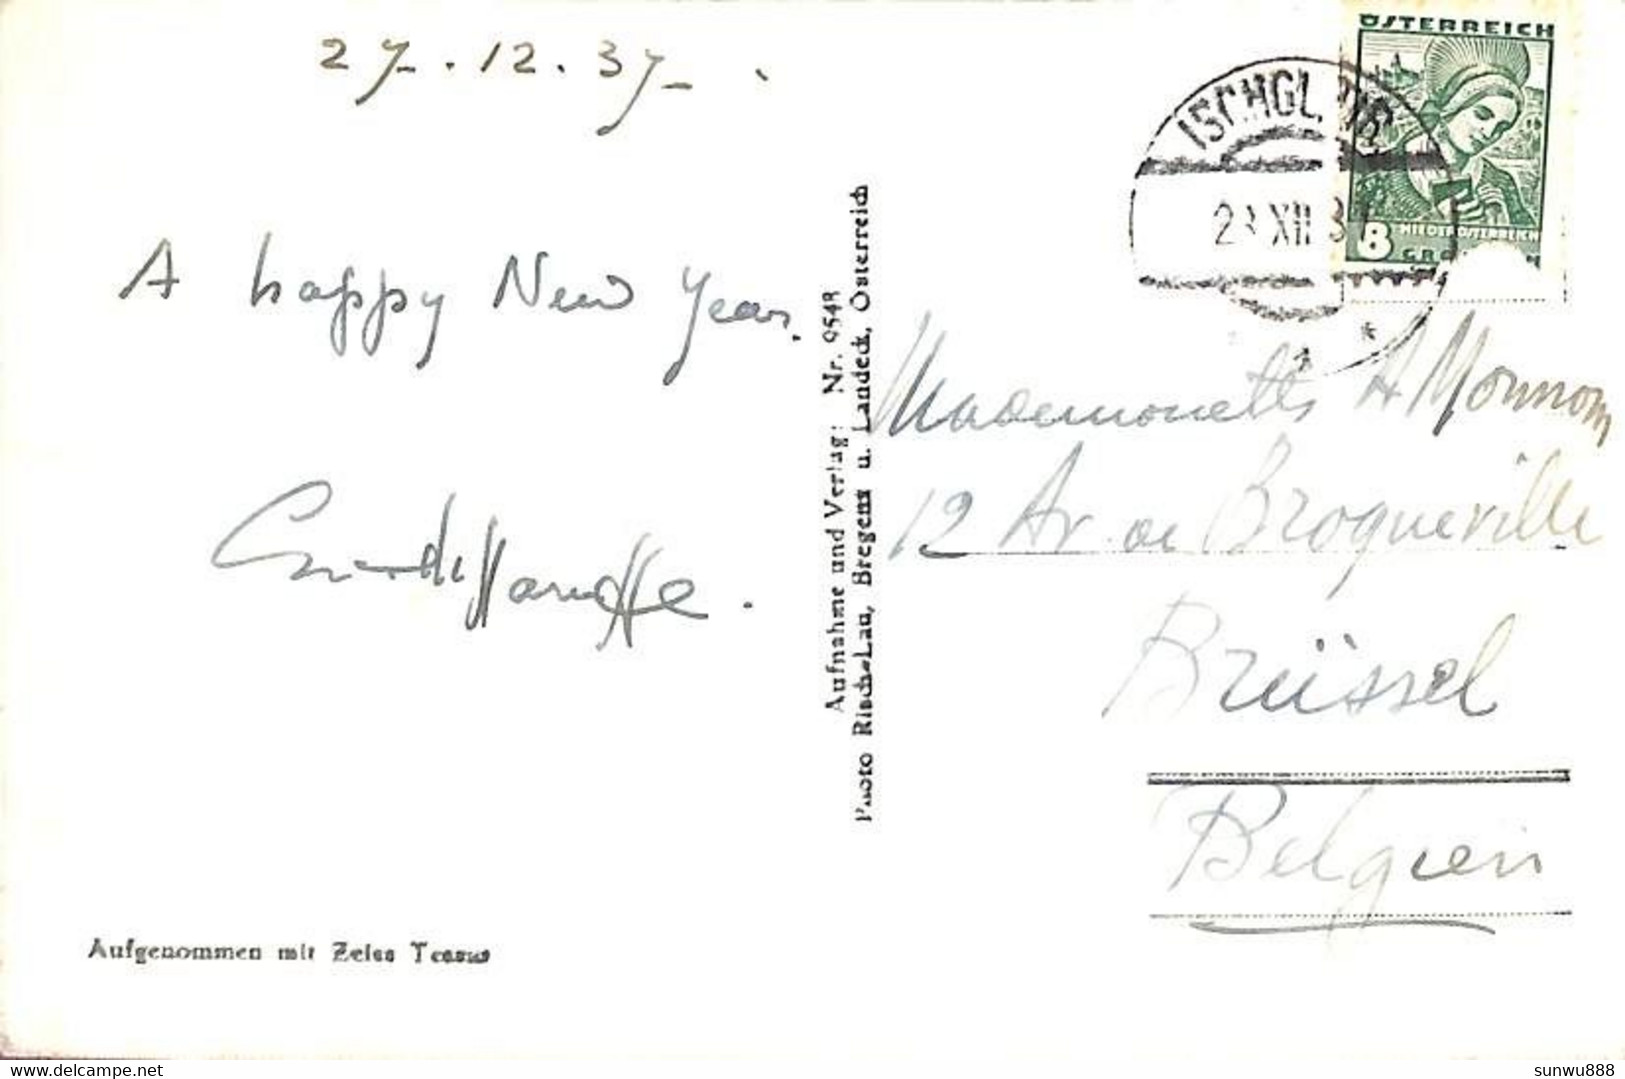 27.12.37.
A happy New Year.
Aufgenommen mit Zeiss Tessar
Aufnahme und Verlag: Nr. 9548
Photo Risch-Lau, Bregenz u. Landeck, Österreich
ISCHGL
XII
ÖSTERREICH
8
NIEDERÖSTERREICH
A Monnom
12 Av. de Broqueville
Brüssel
Belgien
www.delcampe.net
sunwu888